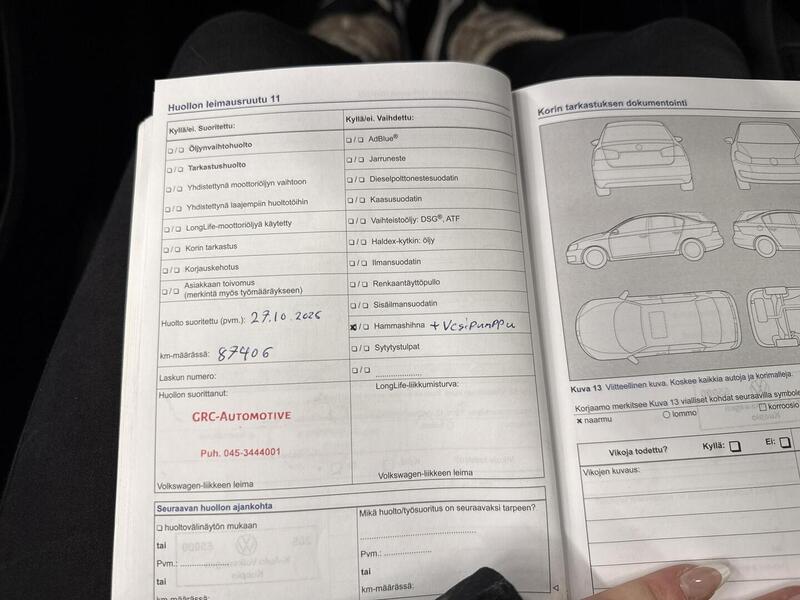 Huollon leimausruutu 11
Kyllä/ei. Suoritettu:
❑ / ❑ Öljynvaihtohuolto
❑ / ❑ Tarkastushuolto
❑ / ❑ Yhdistettynä moottoriöljyn vaihtoon
❑ / ❑ Yhdistettynä laajempiin huoltotöihin
❑ / ❑ LongLife-moottoriöljyä käytetty
❑ / ❑ Korin tarkastus
❑ / ❑ Korjauskehotus
❑ / ❑ Asiakkaan toivomus
(merkintä myös työmääräykseen)
Huolto suoritettu (pvm.): 27.10.2025
km-määrässä: 87406
Laskun numero:
Huollon suorittanut:
GRC-AUTOMOTIVE
Puh. 045-3444001
Volkswagen-liikkeen leima
Kyllä/ei. Vaihdettu:
❑ / ❑ AdBlue®
❑ / ❑ Jarruneste
❑ / ❑ Dieselpolttonestesuodatin
❑ / ❑ Kaasusuodatin
❑ / ❑ Vaihteistoöljy: DSG®, ATF
❑ / ❑ Haldex-kytkin: öljy
❑ / ❑ Ilmansuodatin
❑ / ❑ Renkaantäyttöpullo
❑ / ❑ Sisäilmansuodatin
☒ / ❑ Hammashihna + Vesipumppu
❑ / ❑ Sytytystulpat
❑ / ❑ ....................
LongLife-liikkumisturva:
Volkswagen-liikkeen leima
Seuraavan huollon ajankohta
❑ huoltovälinäytön mukaan
tai
Pvm.: ....................
tai
km-määrässä:
Mikä huolto/työsuoritus on seuraavaksi tarpeen?
........................................
Pvm.: ....................
tai
km-määrässä:
Korin tarkastuksen dokumentointi
Kuva 13 Viitteellinen kuva. Koskee kaikkia autoja ja korimalleja.
Korjaamo merkitsee Kuva 13 vialliset kohdat seuraavilla
× naarmu ○ lommo ❑ korroosio
Vikoja todettu? Kyllä: ❑ Ei: ❑
Vikojen kuvaus: